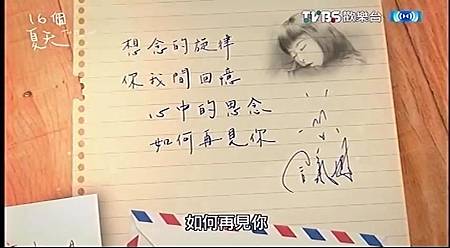 16個
夏天
TVBS歡樂台
想念的旋律
你我間回憶
心中的思念
如何再見你
如何再見你